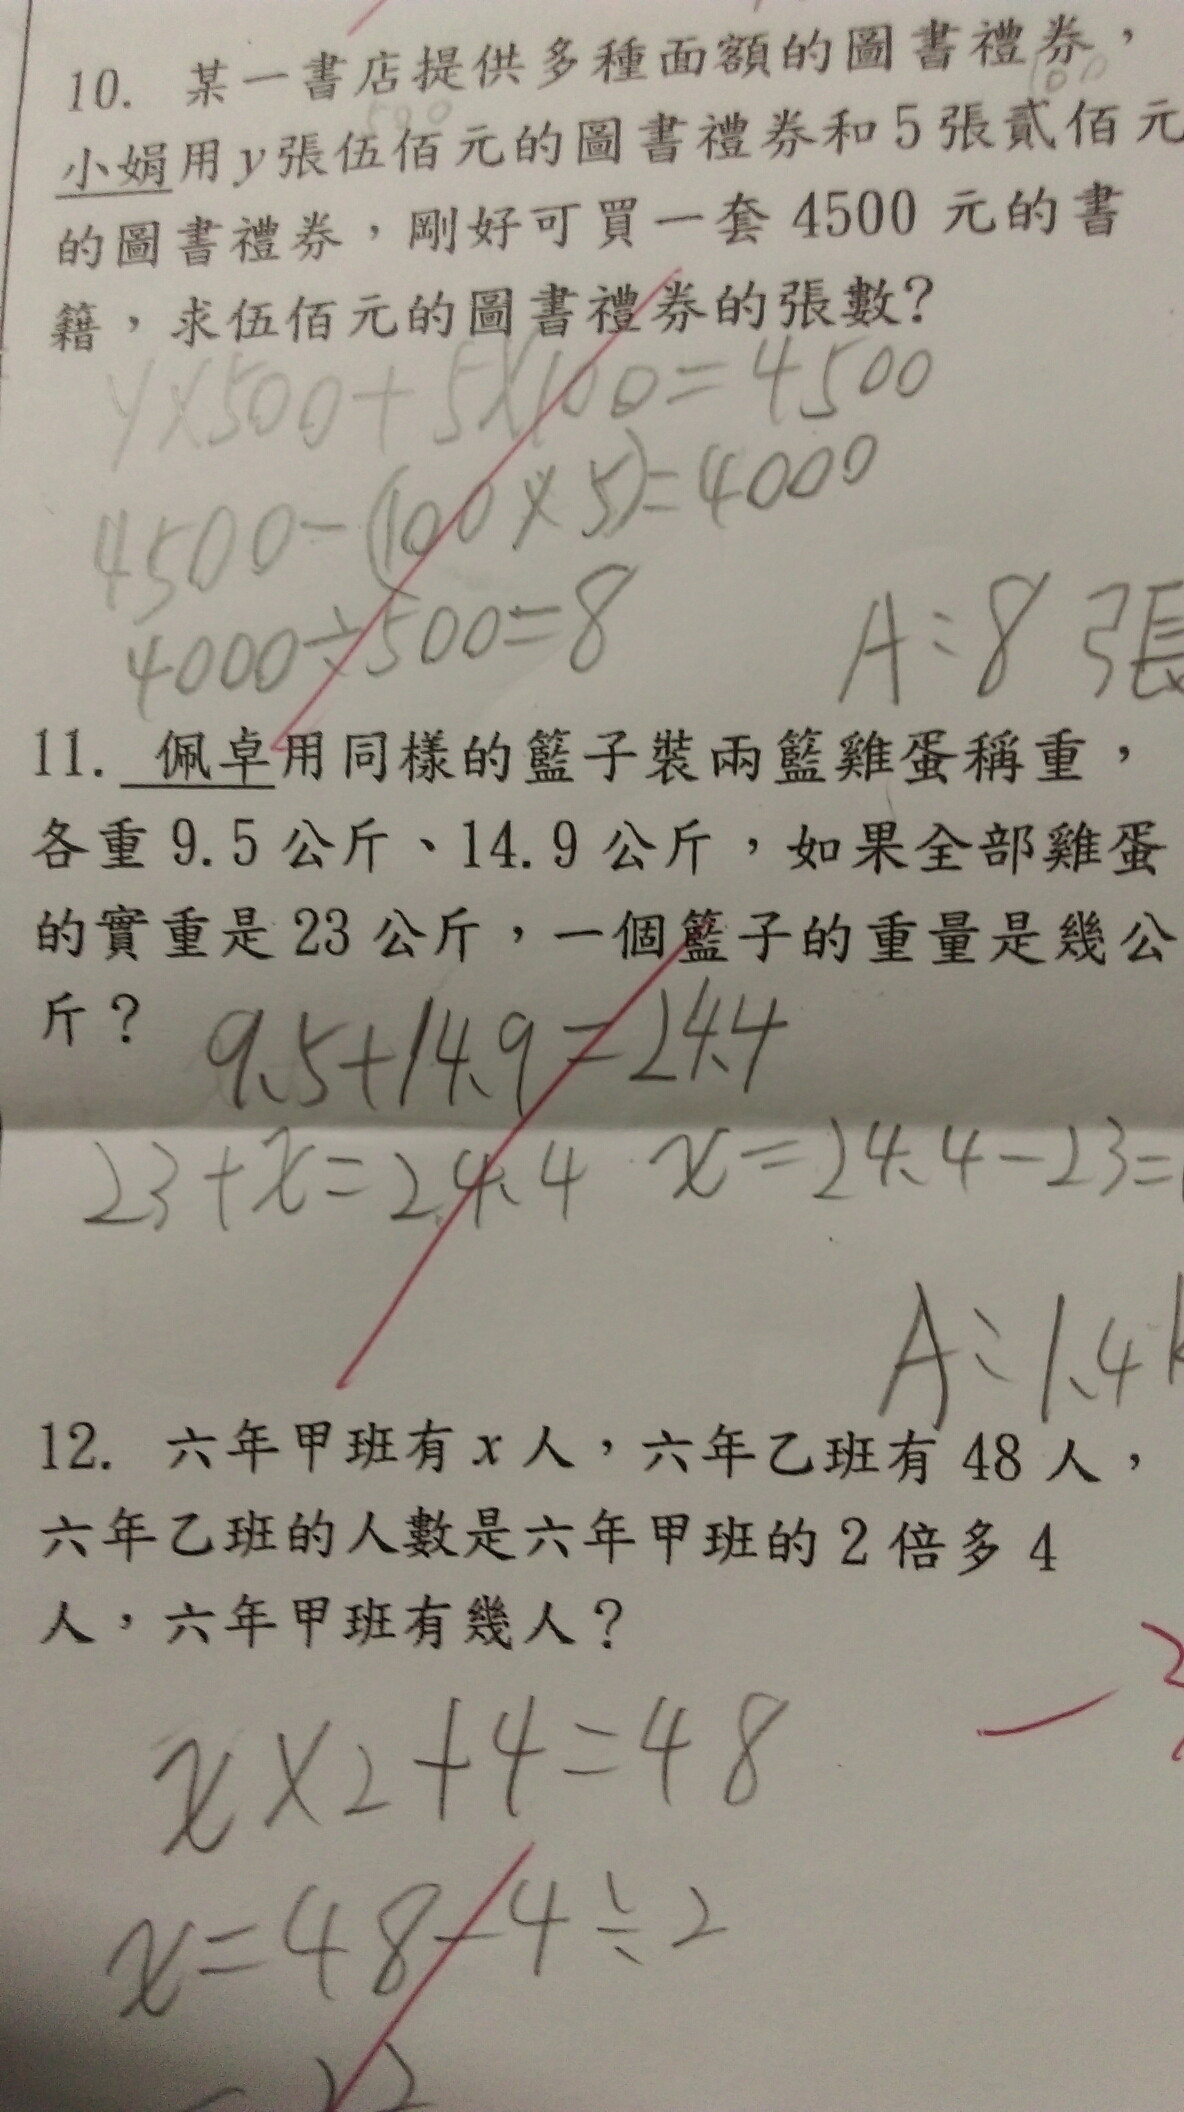 10. 某一書店提供多種面額的圖書禮券，
500 100
小娟用y張伍佰元的圖書禮券和5張貳佰元
的圖書禮券，剛好可買一套 4500 元的書
籍，求伍佰元的圖書禮券的張數?
y×500+5×100=4500
4500-(100×5)=4000
4000÷500=8
A:8張
11. 佩卓用同樣的籃子裝兩籃雞蛋稱重，
各重 9.5 公斤、14.9 公斤，如果全部雞蛋
的實重是 23 公斤，一個籃子的重量是幾公
斤?
9.5+14.9=24.4
23+x=24.4 x=24.4-23=
A:1.4k
12. 六年甲班有 x 人，六年乙班有 48 人，
六年乙班的人數是六年甲班的 2 倍多 4
人，六年甲班有幾人?
x×2+4=48
x=48-4÷2